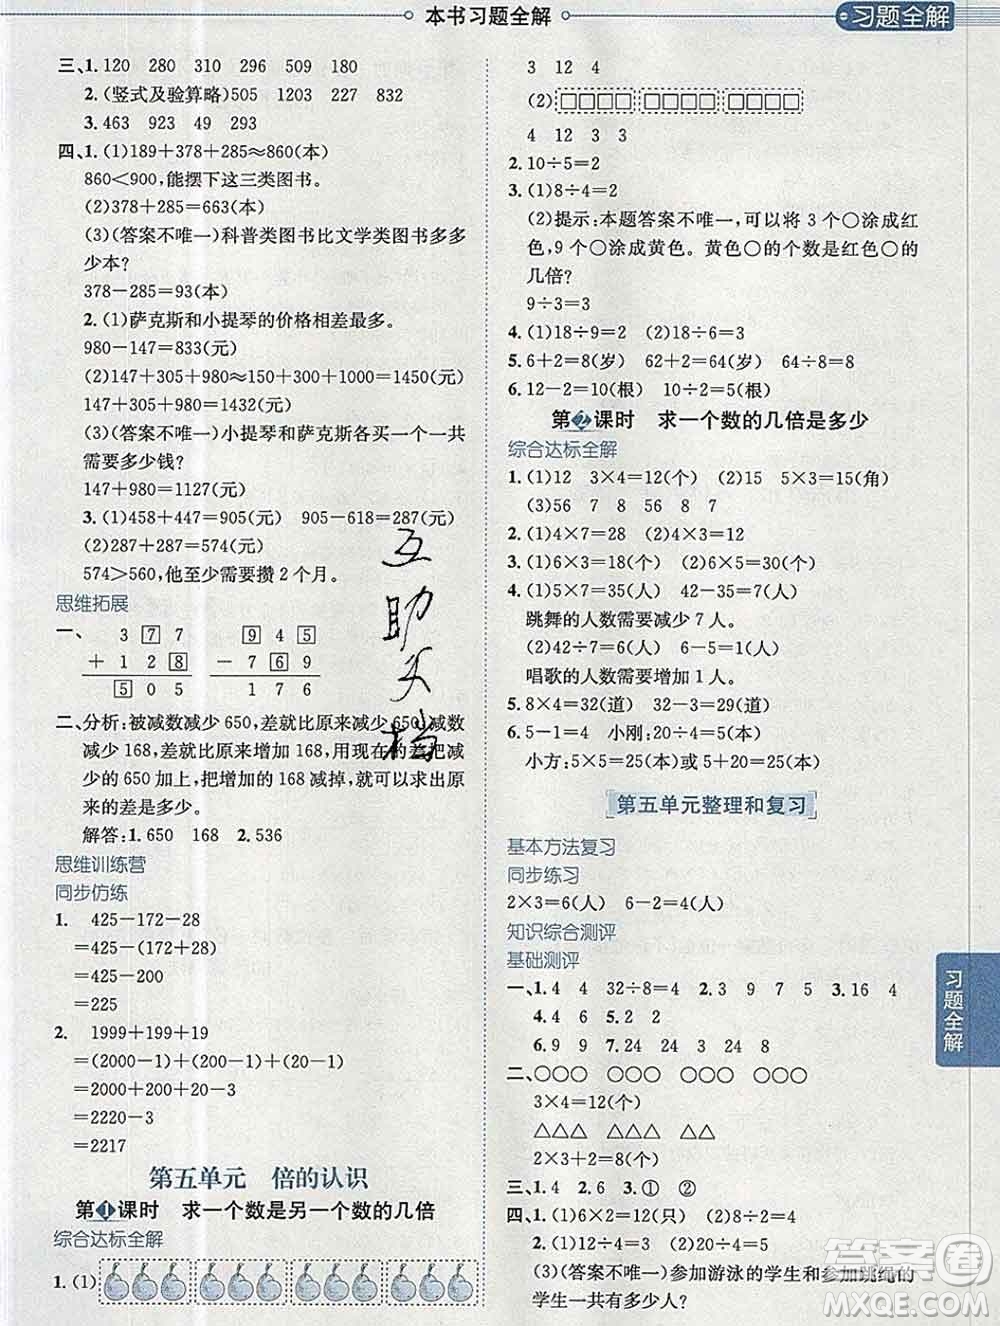 本书习题全解
习题全解
三、1. 120 280 310 296 509 180
2. (竖式及验算略)505 1203 227 832
3. 463 923 49 293
四、1. (1)189+378+285≈860(本)
860<900,能摆下这三类图书。
(2)378+285=663(本)
(3)(答案不唯一)科普类图书比文学类图书多多
少本?
378-285=93(本)
2. (1)萨克斯和小提琴的价格相差最多。
980-147=833(元)
(2)147+305+980≈150+300+1000=1450(元)
147+305+980=1432(元)
(3)(答案不唯一)小提琴和萨克斯各买一个一共
需要多少钱?
147+980=1127(元)
3. (1)458+447=905(元) 905-618=287(元)
(2)287+287=574(元)
574>560,他至少需要攒 2 个月。
思维拓展
一、 3 7 7 9 4 5
+ 1 2 8 - 7 6 9
5 0 5 1 7 6
二、分析:被减数减少 650,差就比原来减少 650,减数
减少 168,差就比原来增加 168,用现在的差把减
少的 650 加上,把增加的 168 减掉,就可以求出原
来的差是多少。
解答:1. 650 168 2. 536
思维训练营
同步仿练
1. 425-172-28
=425-(172+28)
=425-200
=225
2. 1999+199+19
=(2000-1)+(200-1)+(20-1)
=2000+200+20-3
=2220-3
=2217
第五单元 倍的认识
第1课时 求一个数是另一个数的几倍
综合达标全解
1. (1)
3 12 4
(2)□□□□ □□□□ □□□□
4 12 3 3
2. 10÷5=2
3. (1)8÷4=2
(2)提示:本题答案不唯一,可以将 3 个○涂成红
色,9 个○涂成黄色。黄色○的个数是红色○的
几倍?
9÷3=3
4. (1)18÷9=2 (2)18÷6=3
5. 6+2=8(岁) 62+2=64(岁) 64÷8=8
6. 12-2=10(根) 10÷2=5(根)
第2课时 求一个数的几倍是多少
综合达标全解
1. (1)12 3×4=12(个) (2)15 5×3=15(角)
(3)56 7 8 56 8 7
2. (1)4×7=28 (2)4×3=12
3. (1)6×3=18(个) (2)6×5=30(个)
4. (1)7×6=42(人) 42-35=7(人)
跳舞的人数需要减少 7 人。
(2)42÷7=6(人) 6-5=1(人)
唱歌的人数需要增加 1 人。
5. 8×4=32(道) 32-3=29(道)
6. 5-1=4 小刚:20÷4=5(本)
小方:5×5=25(本)或 5+20=25(本)
第五单元整理和复习
基本方法复习
同步练习
2×3=6(人) 6-2=4(人)
知识综合测评
基础测评
一、1. 4 4 32÷8=4 2. 3 9 3. 16 4
4. 2 4 5. 2 2
6. 9 9 7. 24 24 3 24 8
二、○○○ ○○○ ○○○ ○○○
3×4=12(个)
△△△ △△△
2×3=6(个)
三、1. 4 2. 6 3. ① ②
四、1. (1)6×2=12(只) (2)8÷2=4
2. (1)12÷4=3 (2)20÷4=5
(3)(答案不唯一)参加游泳的学生和参加跳绳的
学生一共有多少人?
习题全解
互助文档
答案圈
MXQE.COM